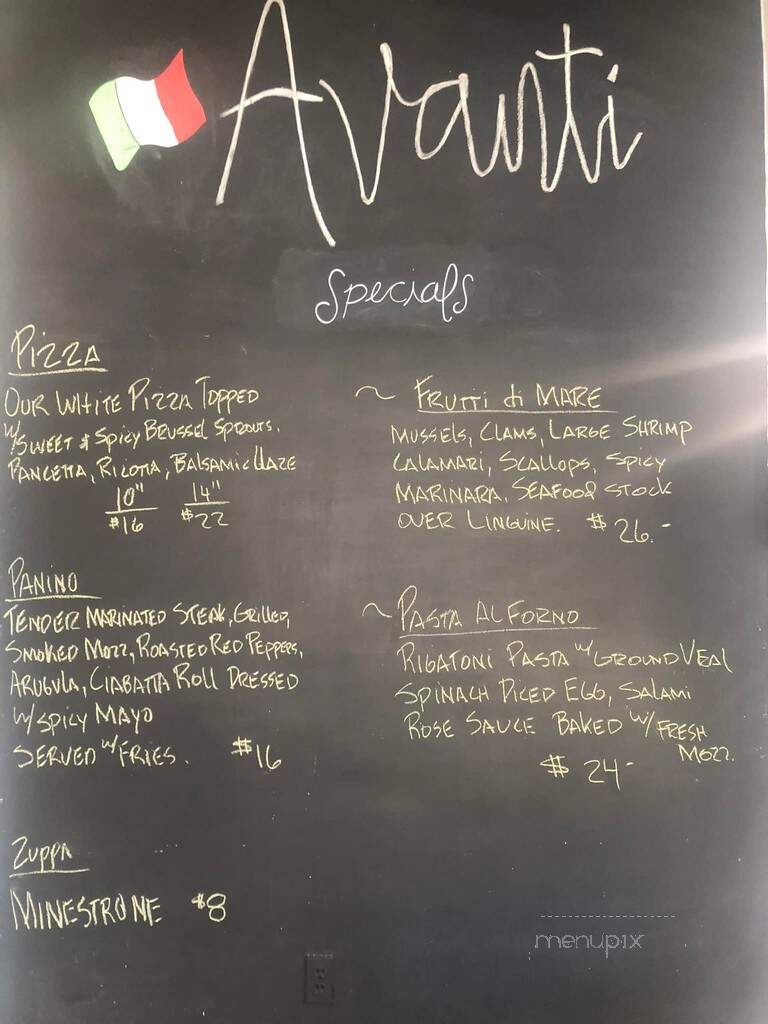 Avanti
Specials
Pizza
Our White Pizza Topped
w/ Sweet & Spicy Brussel Sprouts.
Pancetta, Ricotta, Balsamic Glaze
10" 14"
$16 $22
Panino
Tender Marinated Steak, Grilled,
Smoked Mozz, Roasted Red Peppers,
Arugula, Ciabatta Roll Dressed
w/ Spicy Mayo
Served w/ Fries. $16
Zuppa
Minestrone $8
~ Frutti di Mare
Mussels, Clams, Large Shrimp
Calamari, Scallops, Spicy
Marinara, Seafood Stock
over Linguine. $26.-
~ Pasta Al Forno
Rigatoni Pasta w/ Ground Veal
Spinach Diced Egg, Salami
Rose Sauce Baked w/ Fresh
Mozz.
$24-
menupix